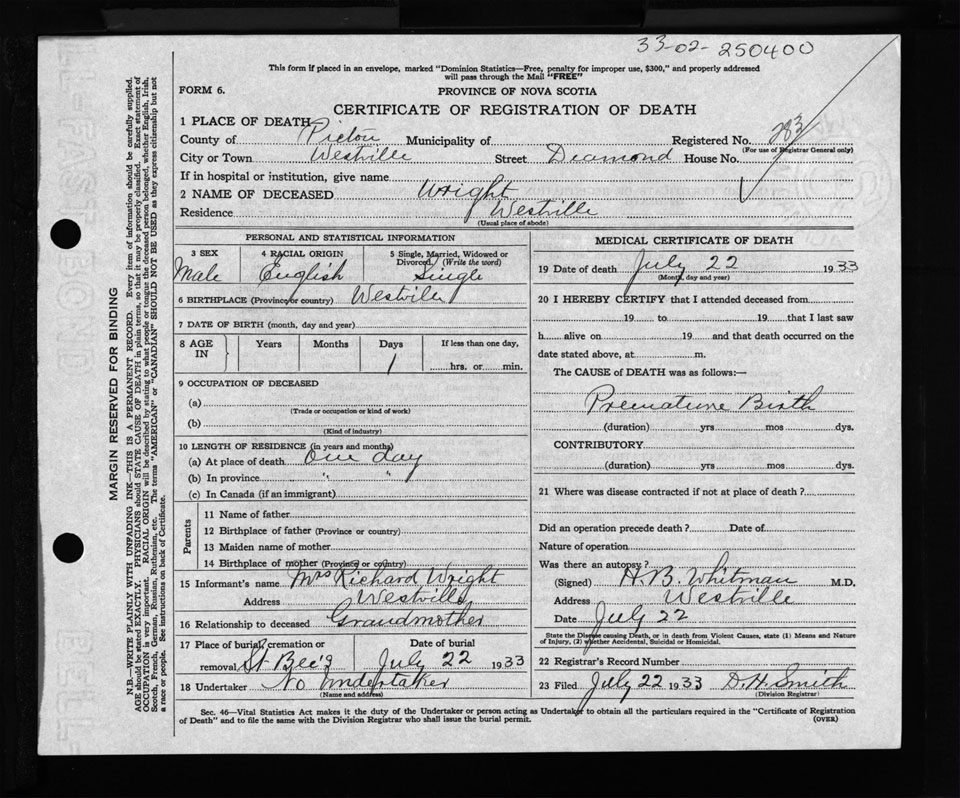 33-02-250400
This form if placed in an envelope, marked "Dominion Statistics—Free, penalty for improper use, $300," and properly addressed
will pass through the Mail "FREE"
FORM 6.
PROVINCE OF NOVA SCOTIA
CERTIFICATE OF REGISTRATION OF DEATH
1 PLACE OF DEATH
County of Pictou Municipality of Registered No. 283
(For use of Registrar General only)
City or Town Westville Street Diamond House No.
If in hospital or institution, give name
2 NAME OF DECEASED Wright
Residence Westville
(Usual place of abode)
MARGIN RESERVED FOR BINDING
N.B.—WRITE PLAINLY WITH UNFADING INK—THIS IS A PERMANENT RECORD. Every item of information should be carefully supplied.
AGE should be stated EXACTLY. PHYSICIANS should STATE CAUSE OF DEATH in plain terms, so that it may be properly classified. Exact statement of
OCCUPATION is very important. RACIAL ORIGIN will be described by stating to what people or tongue the deceased person belonged, whether English, Irish,
Scotch, French, German, Russian, Ruthenian, etc. The terms "AMERICAN" or "CANADIAN" SHOULD NOT BE USED as they express citizenship but not
a race or people. See instructions on back of Certificate.
PERSONAL AND STATISTICAL INFORMATION
3 SEX 4 RACIAL ORIGIN 5 Single, Married, Widowed or
Divorced. (Write the word)
Male English Single
6 BIRTHPLACE (Province or country) Westville
7 DATE OF BIRTH (month, day and year)
8 AGE IN Years Months Days If less than one day,
1 hrs. or min.
9 OCCUPATION OF DECEASED
(a)
(Trade or occupation or kind of work)
(b)
(Kind of industry)
10 LENGTH OF RESIDENCE (in years and months)
(a) At place of death One day
(b) In province " "
(c) In Canada (if an immigrant)
Parents
11 Name of father
12 Birthplace of father (Province or country)
13 Maiden name of mother
14 Birthplace of mother (Province or country)
15 Informant's name Mrs Richard Wright
Address Westville
16 Relationship to deceased Grandmother
17 Place of burial, cremation or Date of burial
removal St Bee's July 22 1933
18 Undertaker No Undertaker
(Name and address)
MEDICAL CERTIFICATE OF DEATH
19 Date of death July 22 1933
(Month, day and year)
20 I HEREBY CERTIFY that I attended deceased from
19 to 19 that I last saw
h alive on 19 and that death occurred on the
date stated above, at m.
The CAUSE of DEATH was as follows:—
Premature Birth
(duration) yrs mos dys.
CONTRIBUTORY
(duration) yrs mos dys.
21 Where was disease contracted if not at place of death?
Did an operation precede death? Date of
Nature of operation
Was there an autopsy?
(Signed) H. B. Whitman M.D.
Address Westville
Date July 22
State the Disease causing Death, or in death from Violent Causes, state (1) Means and Nature
of Injury, (2) whether Accidental, Suicidal or Homicidal.
22 Registrar's Record Number
23 Filed July 22 1933 D H Smith
(Division Registrar)
Sec. 46—Vital Statistics Act makes it the duty of the Undertaker or person acting as Undertaker to obtain all the particulars required in the "Certificate of Registration
of Death" and to file the same with the Division Registrar who shall issue the burial permit.
(OVER)